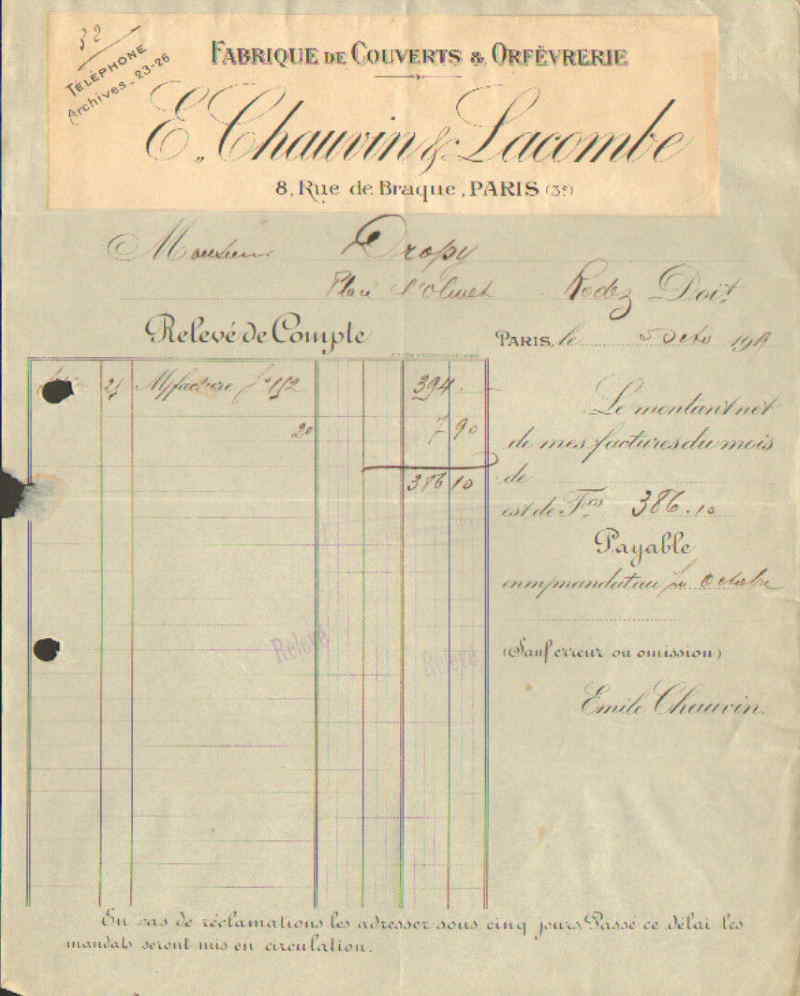 32
TÉLÉPHONE
Archives_23-26
FABRIQUE DE COUVERTS & ORFÈVRERIE
E. Chauvin & Lacombe
8, Rue de Braque, PARIS (3e)
Monsieur Dropy
Place Rodez Doit
Relevé de Compte
PARIS, le 5 Octo 191
21 M/facture 394.
20 7 90
386 10
Le montant net
de mes factures du mois
de
est de Frs 386.10
Payable
en m/mandat au fin Octobre
Relevé
Relevé
(Sauf erreur ou omission)
Emile Chauvin.
En cas de réclamations les adresser sous cinq jours. Passé ce délai les
mandats seront mis en circulation.